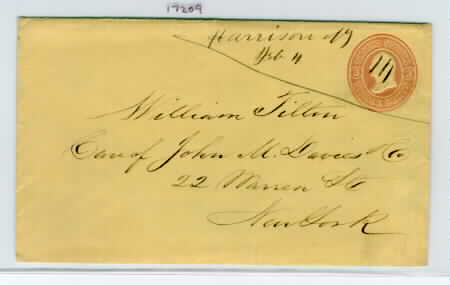 17209
Harrison NY
Feb 11
William Tilton
Care of John M. Davies & Co
22 Warren St
New York